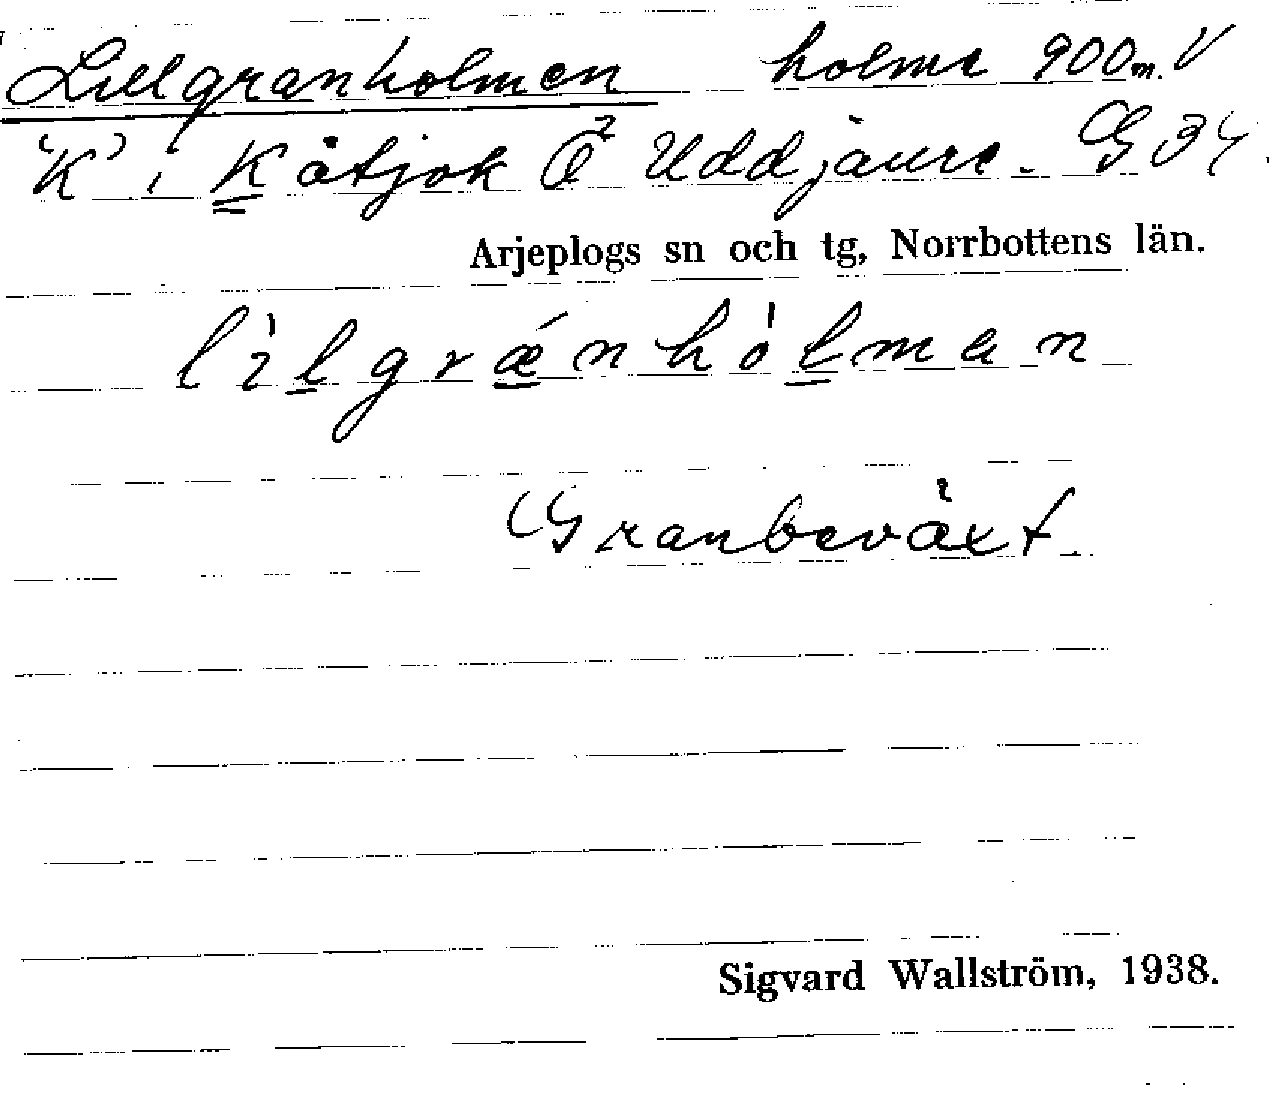 Lillgranholmen holme 900 m. V
"K" i Kåtjok Ö Uddjaure. G 34.
Arjeplogs sn och tg, Norrbottens län.
lìlgrǽnhòlman
Granbeväxt.
Sigvard Wallström, 1938.